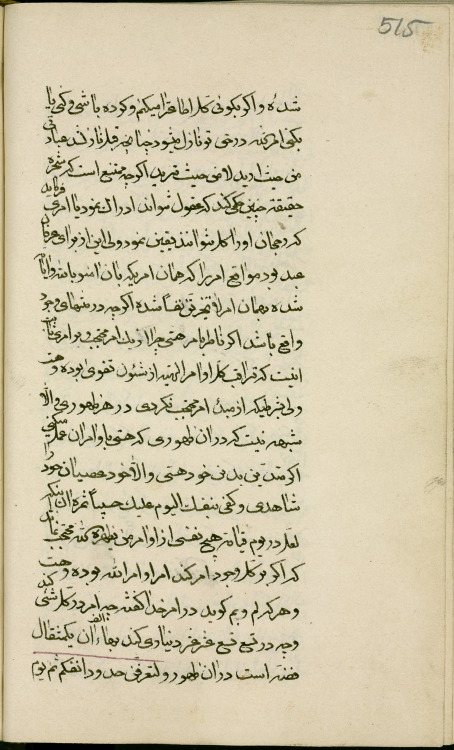 515
شده و اگر بگوئی کل را اطاعة را میکنم و کرده باشی و یکی را
نکنی امر الله در حق تو نازل نشود چنانچه قبل نازل شد عباد
من حیث ارید لا من حیث ترید اگرچه ممتنع است که شجره
حقیقة چنین حکمی کند که عقول نتوانند ادراک نمود یا امری فرماید
که در همان او را کل نتوانند یقین نمود ولی این از برای عرفان
عبد بود مواقع امر را که همان امریکه بان امنوا بالله و ایاته
شده همان امر لا تحرق نفسا شده اگرچه در منتهای وجود
واقع باشد اگر ناظر بامر هستی چرا از یک امر محتجب و بر امری ثابت
اینست که مراقب کل اوامر الهیه از شئون تقوی بوده و هست
ولی بشرطیکه از مبدء امر محتجب نگردی در هر ظهوری و الا
شبهه نیست که در ان ظهوری که هستی باوامر ان عمل میکنی
اگر متدین بدین خود هستی و الا خود عصیان خود را
شاهدی و کفی بنفسک الیوم علیک حسیبا ثمره ان اینکه
لعل در یوم قیامة هیچ نفسی از اوامر من یظهره الله محتجب نماند
که اگر بر کل وجود امر کند امر او امر الله بوده و هست
و هر که لم و بم گوید در امر خدا گفته چه امر در کل شئی کند
و چه در تسع تسع عشر عشر دیناری کند بهاء الف ان یکمثقال
فضه است در ان ظهور و لتعرفن حدود انفسکم ثم یوم